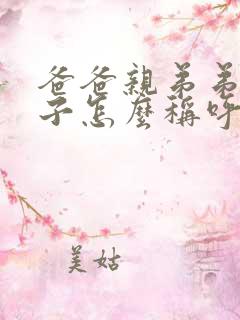 爸爸親弟弟
子怎麼稱呼
美姑